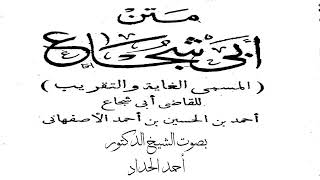 متن
أبى شجاع
( المسمى الغاية والتقريب )
للقاضى أبى شجاع
أحمد بن الحسين بن أحمد الأصفهانى
بصوت الشيخ الدكتور
أحمد الحداد